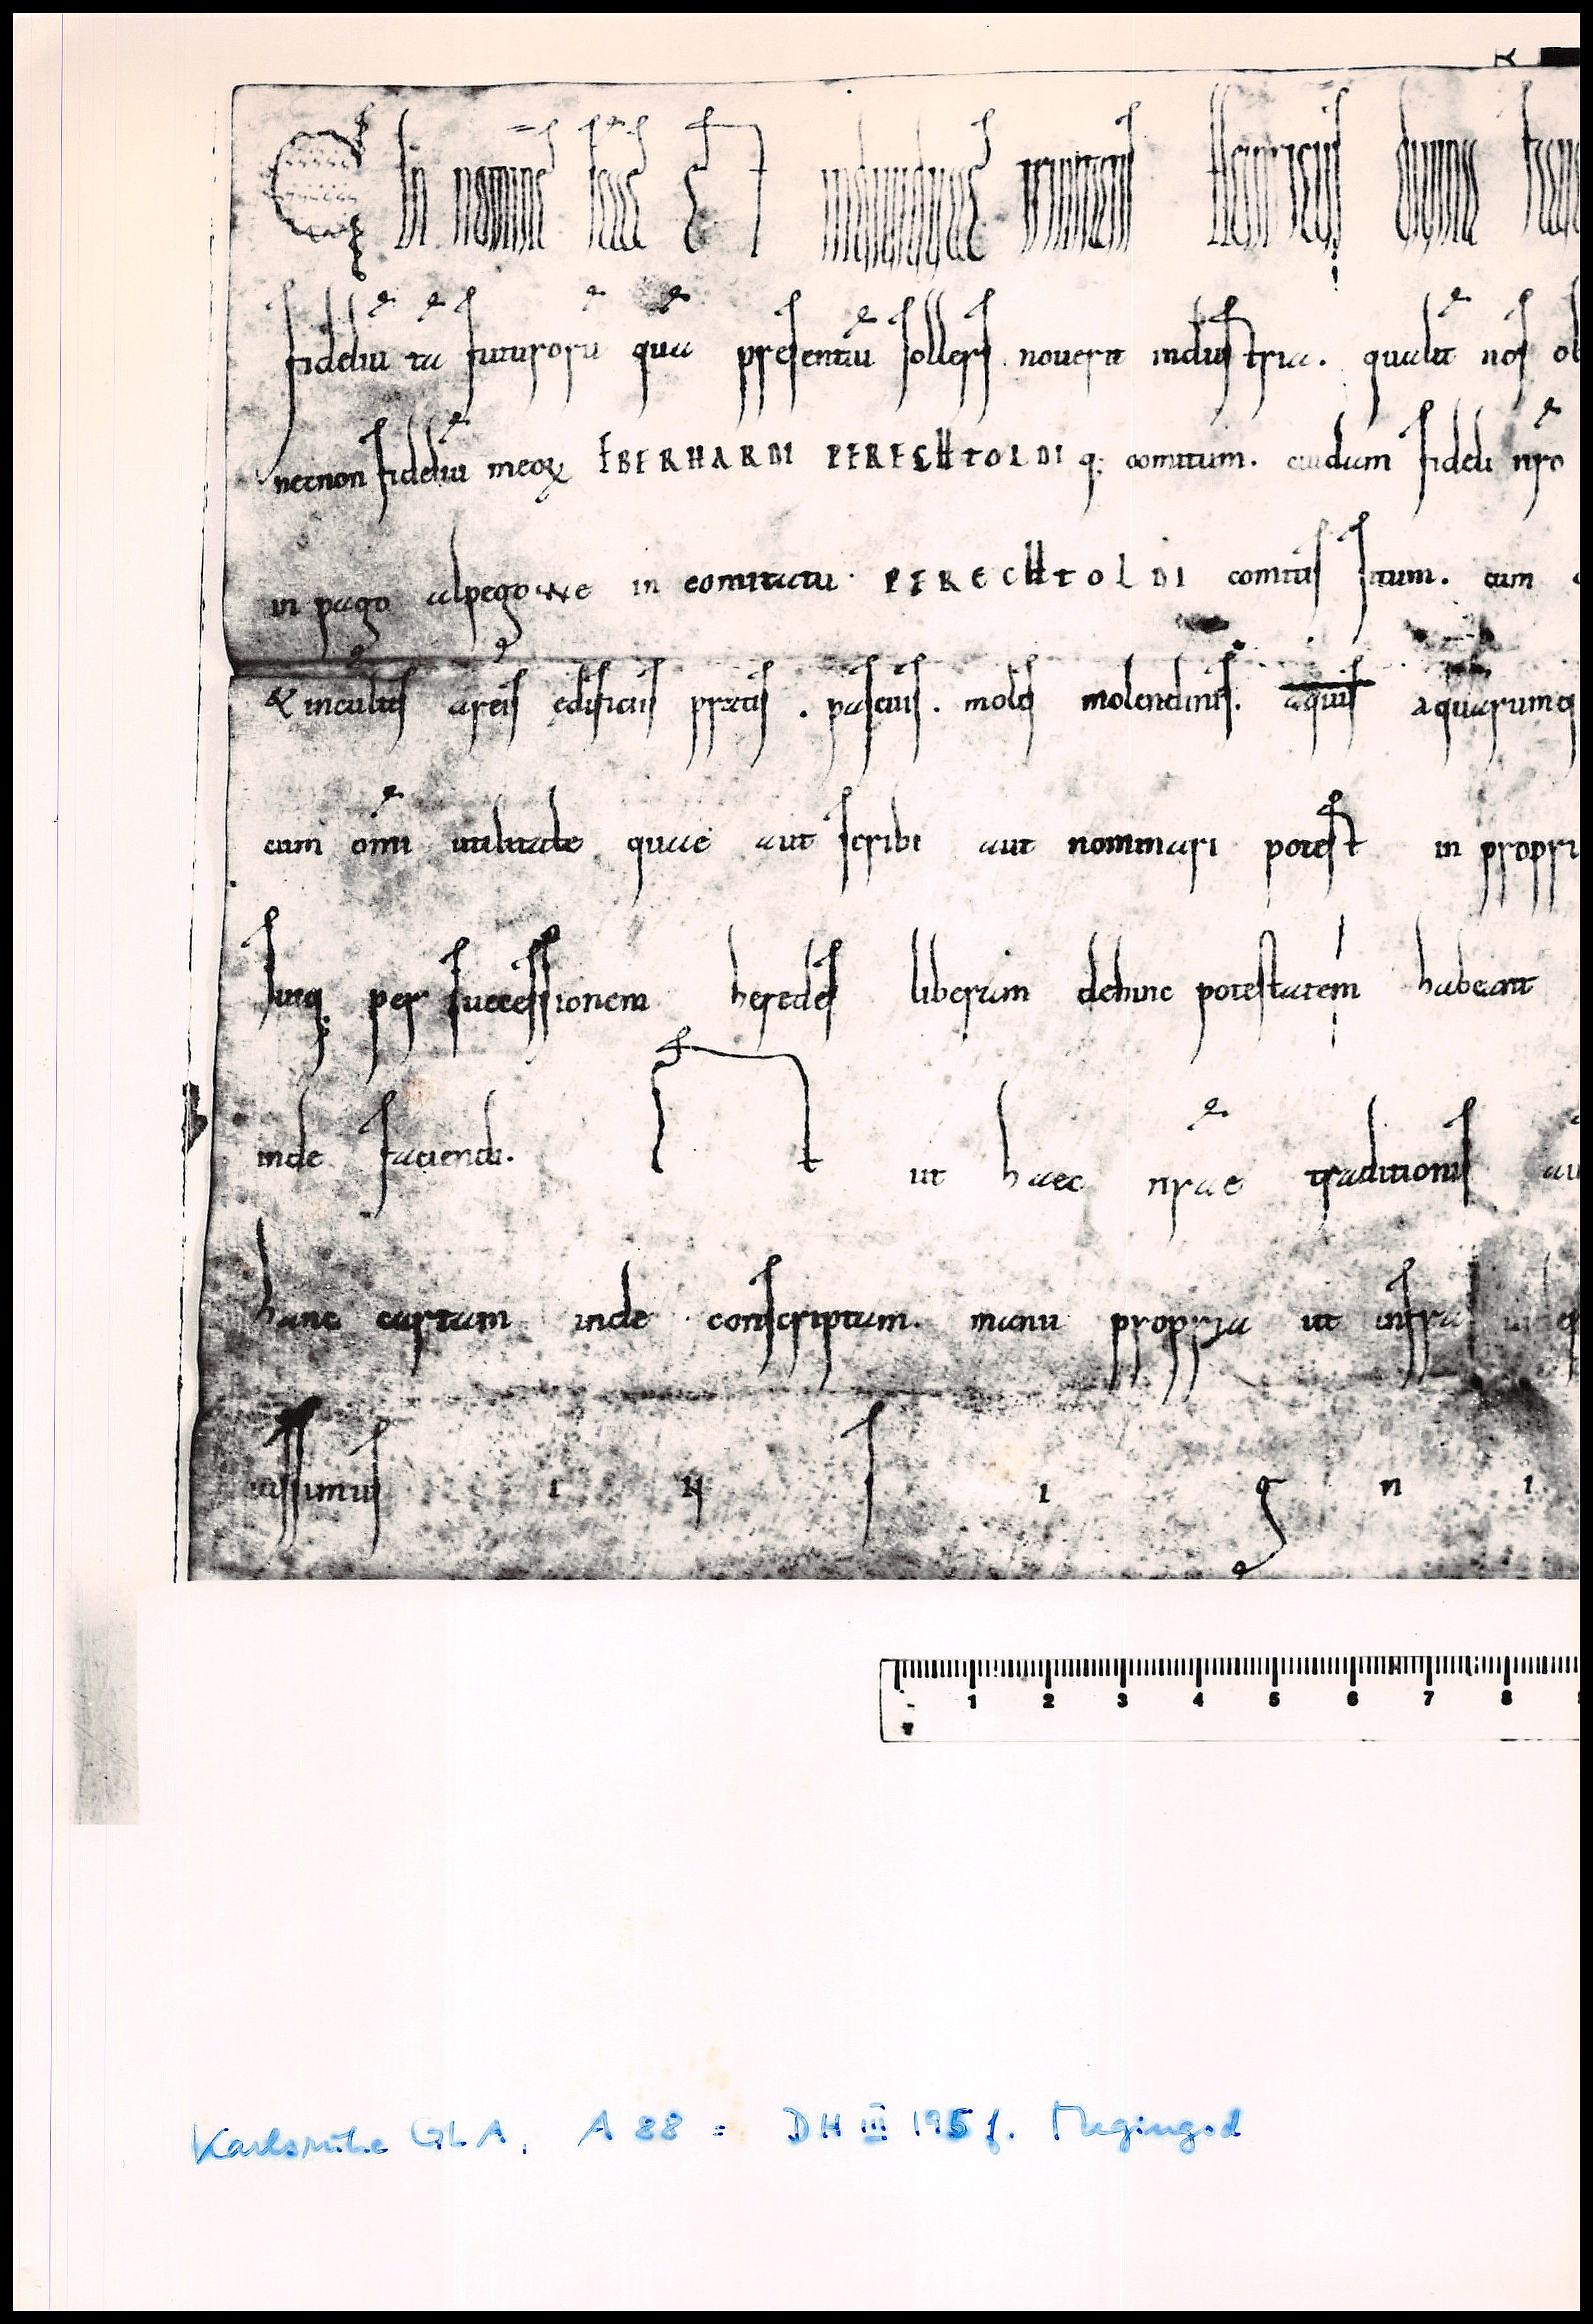 In nomine scae et indiuiduae trinitatis Heinricus diuina
fideliū tā futurorū quā presentiū sollers nouerit industria. qualit̄ nos ob
necnon fideliū meoꝝ EBERHARDI PERECHTOLDI q; comitum. cuidam fideli nrō
in pago alpegowe in comitatu PERECHTOLDI comitis situm. cum
& incultis areis ędificiis pratis . pascuis . molis molendinis. aquis aquarumq
cum omī utilitate quae aut scribi aut nominari potest in propri
suiq; per successionem heredes liberam dehinc potestatem habeant
inde faciendi. Et ut haec nrāe traditionis au
hanc cartam inde conscriptam. manu propria ut infra
issimus i n s i g n i
1 2 3 4 5 6 7 8
Karlsruhe GLA, A 88 = DH III 195 f. Megingod